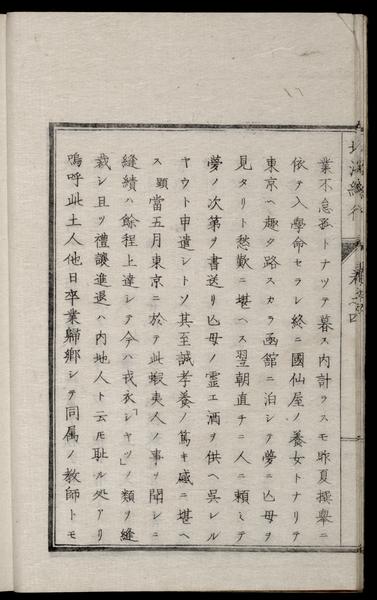 業不怠貧トナツテ暮ス内計ラスモ昨夏撰擧ニ
依テ入學命セラレ終ニ國仙屋ノ養女トナリテ
東京ヘ趣ク路スカラ函館ニ泊シテ夢ニ亡母ヲ
見タリト愁歎ニ堪ヘス翌朝直チニ人ニ頼ミテ
夢ノ次第ヲ書送リ亡母ノ霊エ酒ヲ供ヘ呉レル
ヤウト申遣シトソ其至誠孝養ノ篤キ感ニ堪ヘ
ス顕當五月東京ニ於テ此蝦夷人ノ事ヲ聞シニ
縫績ハ餘程上達シテ今ハ戎衣「シヤツ」ノ類ヲ縫
裁シ且ツ禮譲進退ハ内地人ト云𪜈耻ル処アリ
嗚呼此土人他日卒業歸郷シテ同属ノ教師トモ